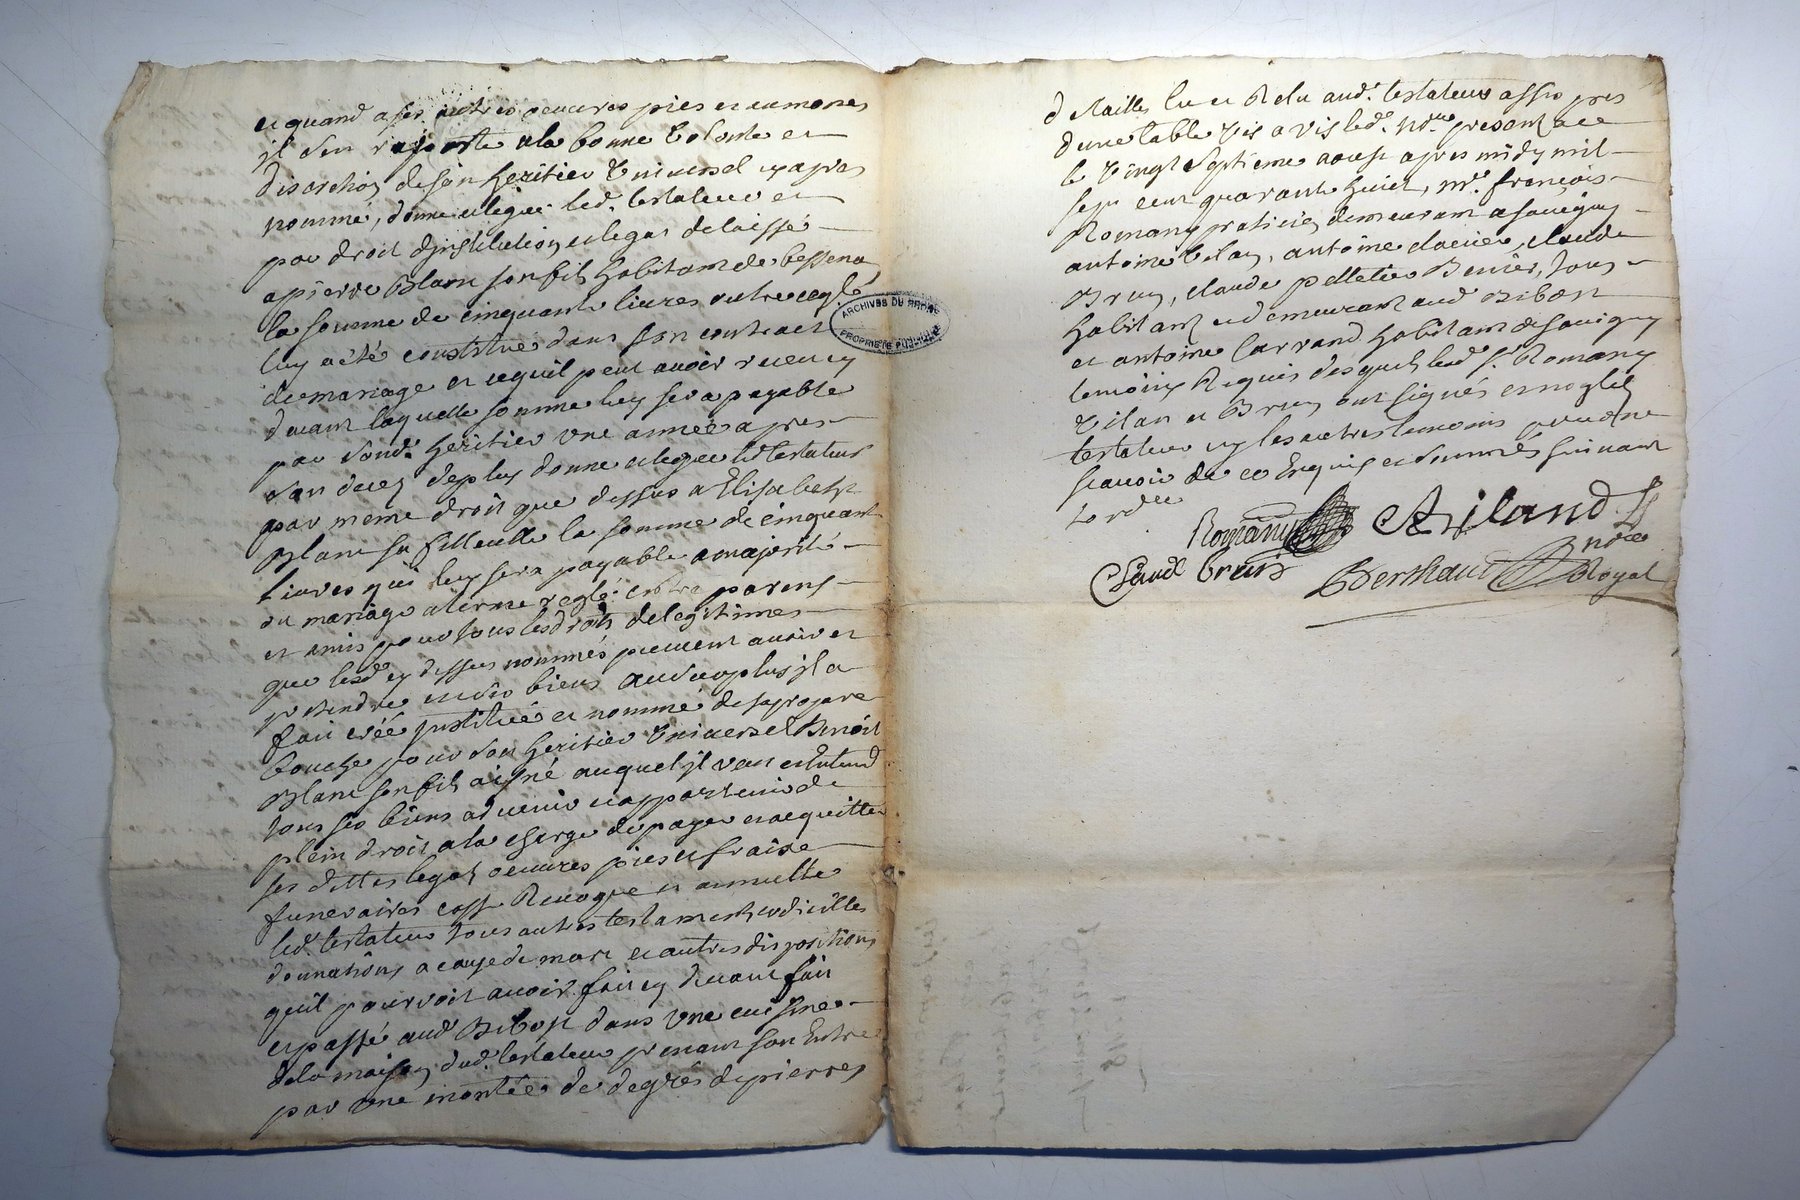 et quand a ses autres oeuvres pies et aumones
il s'en rapporte a la bonne volonte et
discretion de son heritier universel cy apres
nommé, donne et legue led. testateur et
par droit d'institution et legat delaissé
a pierre Blanc son fils habitant de bessena
la somme de cinquante livres outre ce q.
luy a été constitué dans son contract
de mariage et ce quil peut avoir receu cy
devant laquelle somme luy sera payable
par sond. heritier une année apres
son deceş deplus donne et legue led testateur
par meme droit que dessus a Elisabeth
Blanc sa filleulle la somme de cinquante
livres qui luy sera payable a majorité
ou mariage a terme reglé entre parens
et amis pour tous les droits de legitimes
que lesd cy dessus nommés peuvent avoir et
pretendre en ses biens au surplus il a
fait créé institué et nommé de sa propre
bouche pour son heritier universel Benoit
Blanc son fils aigné auquel il veut et entend
tous ses biens advenir et appartenir de
plein droit a la charge de payer et acquitter
ses dettes legats oeuvres pies et fraix
funeraires casse revoque et annulle
led. testateur tous autres testaments codicilles
donnations a cause de mort et autres dispositions
quil pourroit avoir fait cy devant fait
et passé aud Bibost dans une cuisine
de la maison dud. testateur prenant son entré
par une montée de degrés de pierres
ARCHIVES DU RHONE
PROPRIETE PUBLIQUE
detaille lu et relu aud. testateur assis pres
d'une table vis a vis led. no.re present ace
le vingt septieme aoust apres midy mil
sept cent quarante huict, mr. françois
Romany praticien demeurant a savigny
antoine , antoine , claude
Brun, claude pelletier Benier, tous
habitant et demeurant aud Bibost
et antoine Carrand habitant de savigny
temoins requis desquels led. sr. Romany
vilan et Brun ont signés et non led
testateur ny les autres temoins pour ne
scavoir de ce enquis et sommés suivant
lordce
Romany Ailand
Claude brun Berthaud nore
Royal